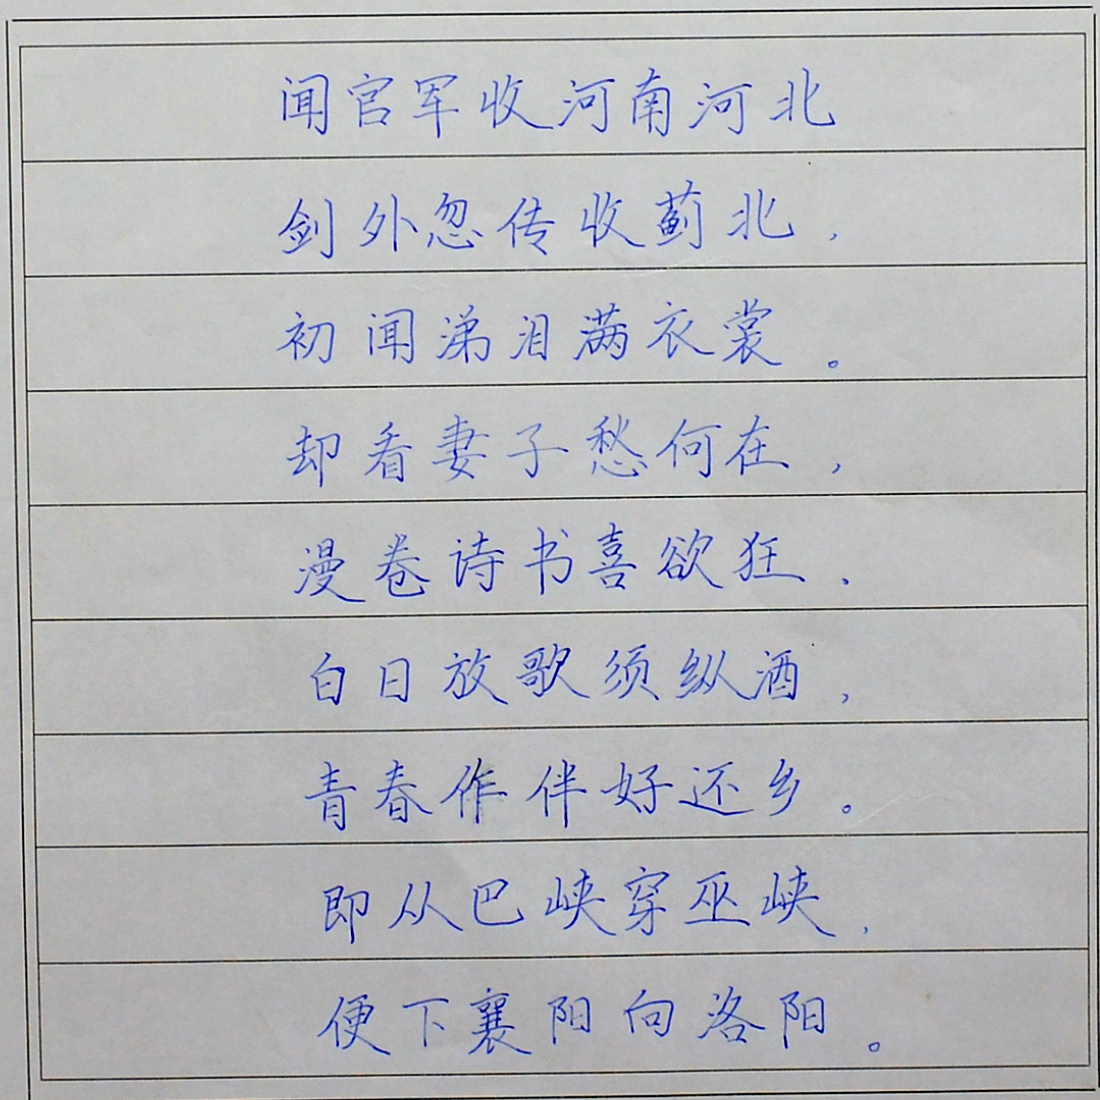 闻官军收河南河北
剑外忽传收蓟北，
初闻涕泪满衣裳。
却看妻子愁何在，
漫卷诗书喜欲狂．
白日放歌须纵酒，
青春作伴好还乡。
即从巴峡穿巫峡，
便下襄阳向洛阳。